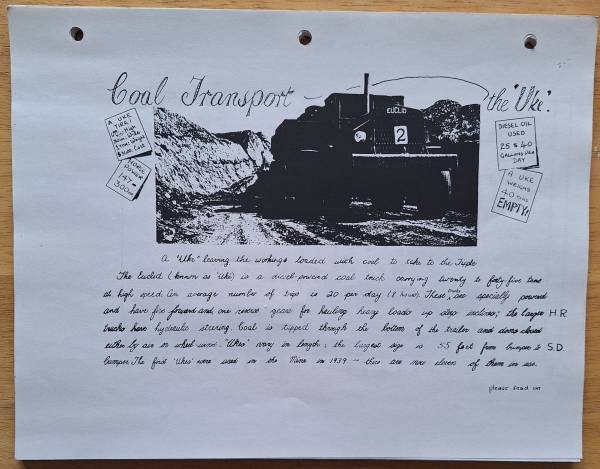 Coal Transport – the 'Uke'.
A UKE
TIRE:
HORSE
POWER
147-
300
EUCLID
2
DIESEL OIL
USED
25 & 40
GALLONS PER
DAY
A UKE
WEIGHS
40 TONS
EMPTY!
A "Uke" leaving the workings loaded with coal to take to the Tiple
The Euclid (known as 'Uke') is a diesel-powered coal truck carrying twenty to forty five tons
at high speed. An average number of trips is 20 per day (8 hours). These trucks are specially powered
and have five forward and one reverse gears for hauling heavy loads up steep inclines; the larger H.R
trucks have hydraulic steering. Coal is tipped through the bottom of the trailer and doors closed
either by air or wheel wind. "Ukes" vary in length; the largest size is 55 feet from bumper to S.D
bumper. The first 'Ukes' were used in the Mine in 1939 — there are now eleven of them in use.
please read on